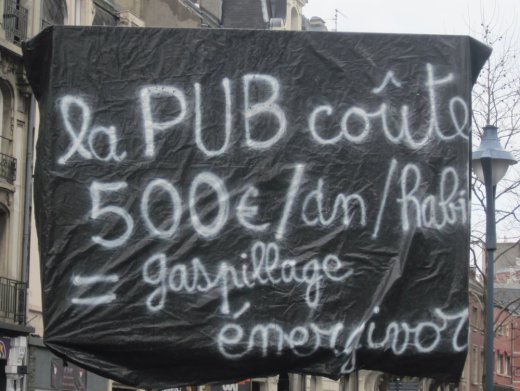 la PUB coûte
500€/an/habi
= gaspillage
énergivor